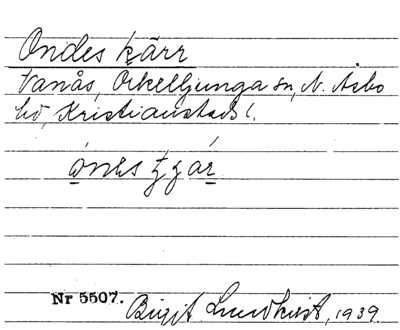 Ondes kärr
Vanås, Örkelljunga sn, N. Åsbo
hd, Kristianstads l.
Nr 5507. Birgit Lundkvist, 1939.